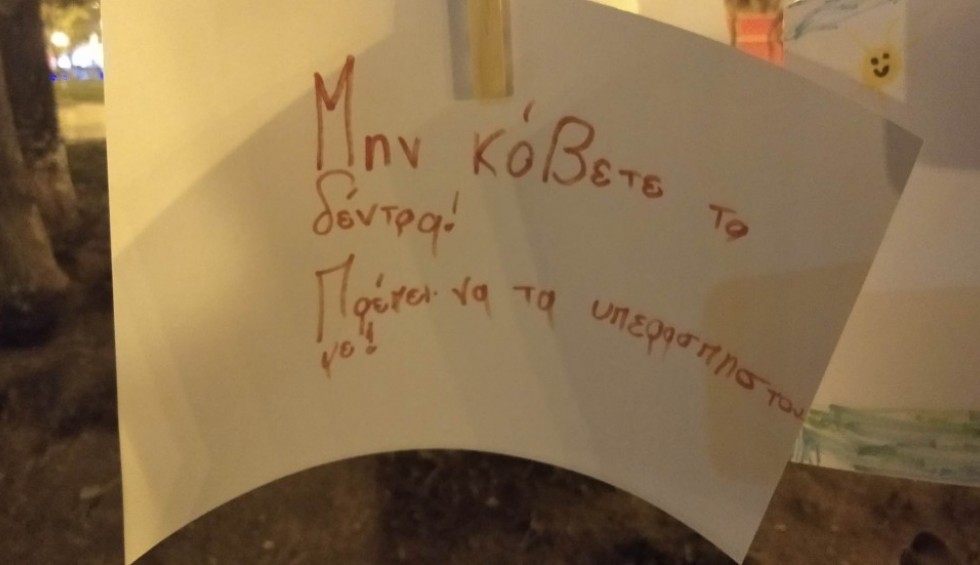 Μην κόβετε τα
δέντρα!
Πρέπει να τα υπερασπηστού
με!